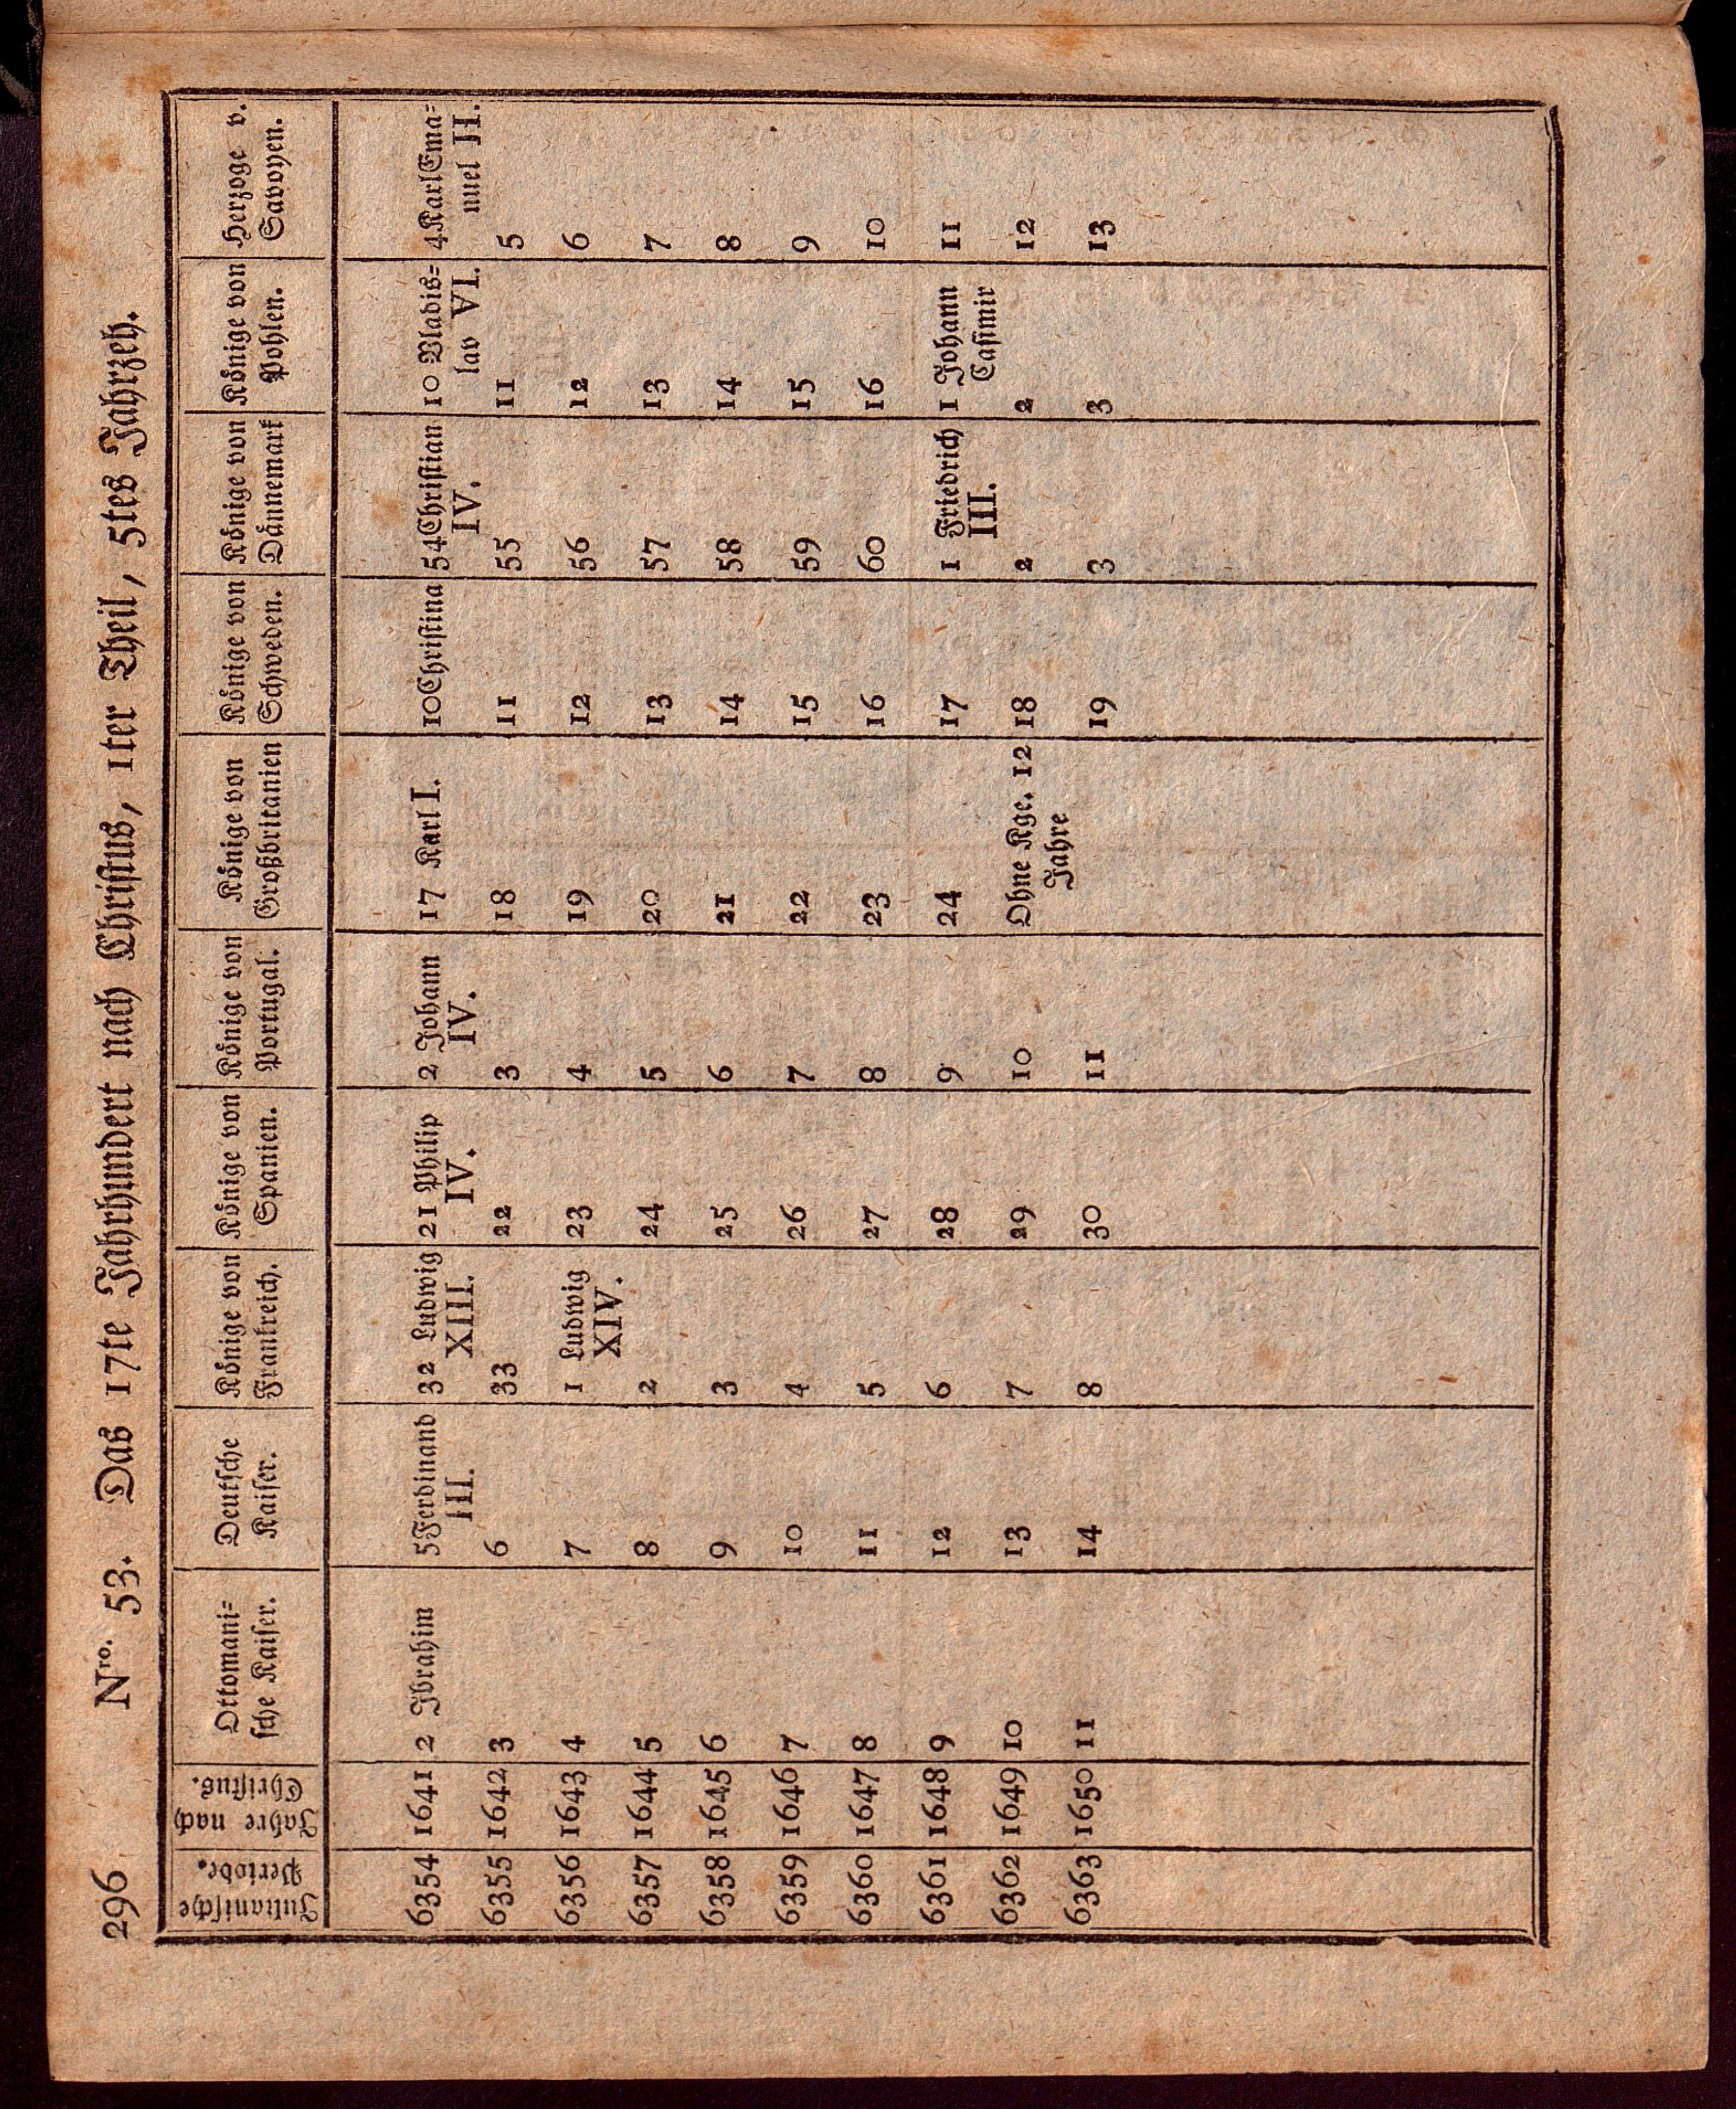 296 Nro. 53. Das 17te Jahrhundert nach Christus, 1ter Theil, 5tes Jahrzeh.
Julianische Periode. | Jahre nach Christus. | Ottomani= sche Kaiser. | Deutsche Kaiser. | Könige von Frankreich. | Könige von Spanien. | Könige von Portugal. | Könige von Großbritanien | Könige von Schweden. | Könige von Dännemark | Könige von Pohlen. | Herzoge v. Savoyen.
6354 | 1641 | 2 Ibrahim | 5 Ferdinand III. | 32 Ludwig XIII. | 21 Philip IV. | 2 Johann IV. | 17 Karl I. | 10 Christina | 54 Christian IV. | 10 Vladis= lav VI. | 4 Karl Ema= nuel II.
6355 | 1642 | 3 | 6 | 33 | 22 | 3 | 18 | 11 | 55 | 11 | 5
6356 | 1643 | 4 | 7 | 1 Ludwig XIV. | 23 | 4 | 19 | 12 | 56 | 12 | 6
6357 | 1644 | 5 | 8 | 2 | 24 | 5 | 20 | 13 | 57 | 13 | 7
6358 | 1645 | 6 | 9 | 3 | 25 | 6 | 21 | 14 | 58 | 14 | 8
6359 | 1646 | 7 | 10 | 4 | 26 | 7 | 22 | 15 | 59 | 15 | 9
6360 | 1647 | 8 | 11 | 5 | 27 | 8 | 23 | 16 | 60 | 16 | 10
6361 | 1648 | 9 | 12 | 6 | 28 | 9 | 24 | 17 | 1 Friedrich III. | 1 Johann Casimir | 11
6362 | 1649 | 10 | 13 | 7 | 29 | 10 | Ohne Kge. 12 Jahre | 18 | 2 | 2 | 12
6363 | 1650 | 11 | 14 | 8 | 30 | 11 | | 19 | 3 | 3 | 13